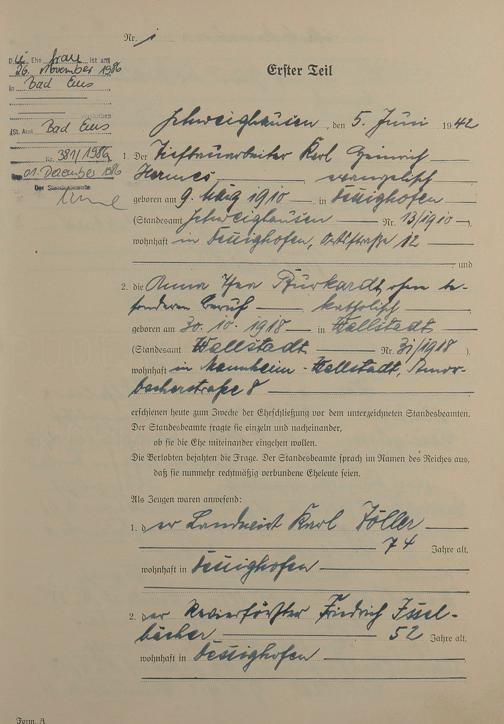 Nr. 1
Erster Teil
D. ie Ehe frau ist am
26. November 1986
in Bad Ems
verstorben
(St. Amt Bad Ems
Nr. 381/1986)
, den 01. Dezember 1986
Der Standesbeamte
Schweighausen, den 5. Juni 1942
1. Der Tiefbauarbeiter Karl Heinrich
Hermes, evangelisch
geboren am 9. März 1910 in Dessighofen
(Standesamt Schweighausen Nr. 13/1910),
wohnhaft in Dessighofen, Ortsstraße 12
und
2. die Anna Burkardt, ohne be-
sonderen Beruf, katholisch
geboren am 30. 10. 1918 in Wallstadt
(Standesamt Wallstadt Nr. 31/1918),
wohnhaft in Mannheim-Wallstadt, Amor-
bacherstraße 8
erschienen heute zum Zwecke der Eheschließung vor dem unterzeichneten Standesbeamten.
Der Standesbeamte fragte sie einzeln und nacheinander,
ob sie die Ehe miteinander eingehen wollen.
Die Verlobten bejahten die Frage. Der Standesbeamte sprach im Namen des Reiches aus,
daß sie nunmehr rechtmäßig verbundene Eheleute seien.
Als Zeugen waren anwesend:
1. der Landwirt Karl Föller
74 Jahre alt,
wohnhaft in Dessighofen
2. der Revierförster Friedrich Issel-
bächer 52 Jahre alt,
wohnhaft in Dessighofen
Form. A